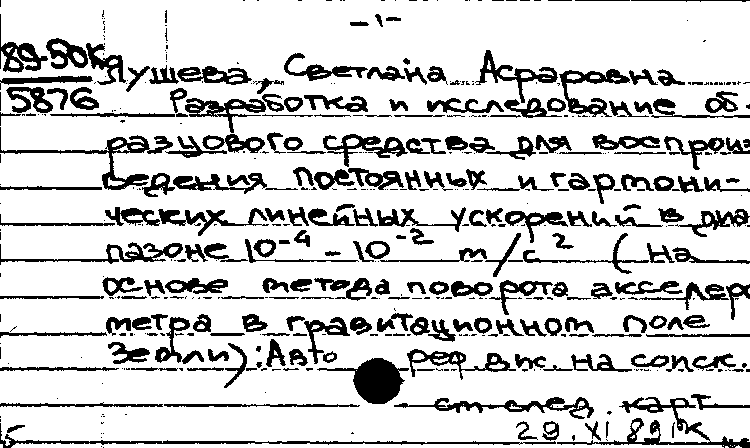 -1-
89-50K
5876
Лушева, Светлана Асфаровна
Разработка и исследование об-
разцового средства для воспроиз
ведения постоянных и гармони-
ческих линейных ускорений в диа
пазоне 10-4 - 10-2 м/с2 (на
основе метода поворота акселеро
метра в гравитационном поле
Земли): Авто реф. дис. на соиск.
см. след. карт
29.XI 89
5